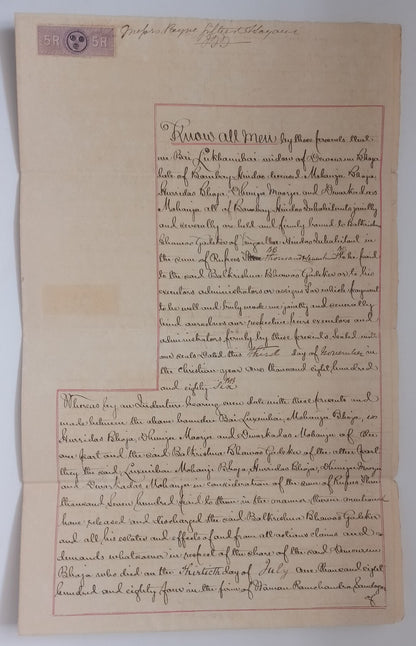 5R 5R
Messrs Payne Gilbert & Sayani
Know all Men by these presents that
we Bai Lukhamibai widow of Dewarsee Bhoja
late of Bombay Hindoo deceased Mohanjee Bhoja
Hurridas Bhoja Dhunjee Moorjee and Dwarkadass
Mohanjee all of Bombay Hindoo Inhabitants jointly
and severally are held and firmly bound to Balkrishna
Bhawoo Hindoo Inhabitant in
the sum of Rupees Thousand to be paid
to the said Balkrishna Bhawoo or to his
executors administrators or assigns for which payment
to be well and truly made we jointly and severally
bind ourselves our respective heirs executors and
administrators firmly by these presents Sealed with
our seals Dated this Third day of November in
the Christian year one thousand eight hundred
and eighty Six
Whereas by an Indenture bearing even date with these presents and
made between the above bounden Bai Luxmibai, Mohanjee Bhoja,
Hurridas Bhoja, Dhunjee Moorjee and Dwarkadas Mohanjee of the
one part and the said Balkrishna Bhawoo of the other part
they the said Luxmibai Mohanjee Bhoja, Hurridas Bhoja, Dhunjee Moorjee
and Dwarkadas Mohanjee in consideration of the sum of Rupees
thousand Seven hundred paid to them in the manner therein mentioned
have released and discharged the said Balkrishna Bhawoo
and all his estates and effects of and from all actions claims and
demands whatsoever in respect of the share of the said Dewarsee
Bhoja who died on the Thirtieth day of July one thousand eight
hundred and eighty four in the firm of Waman Ramchandra
of